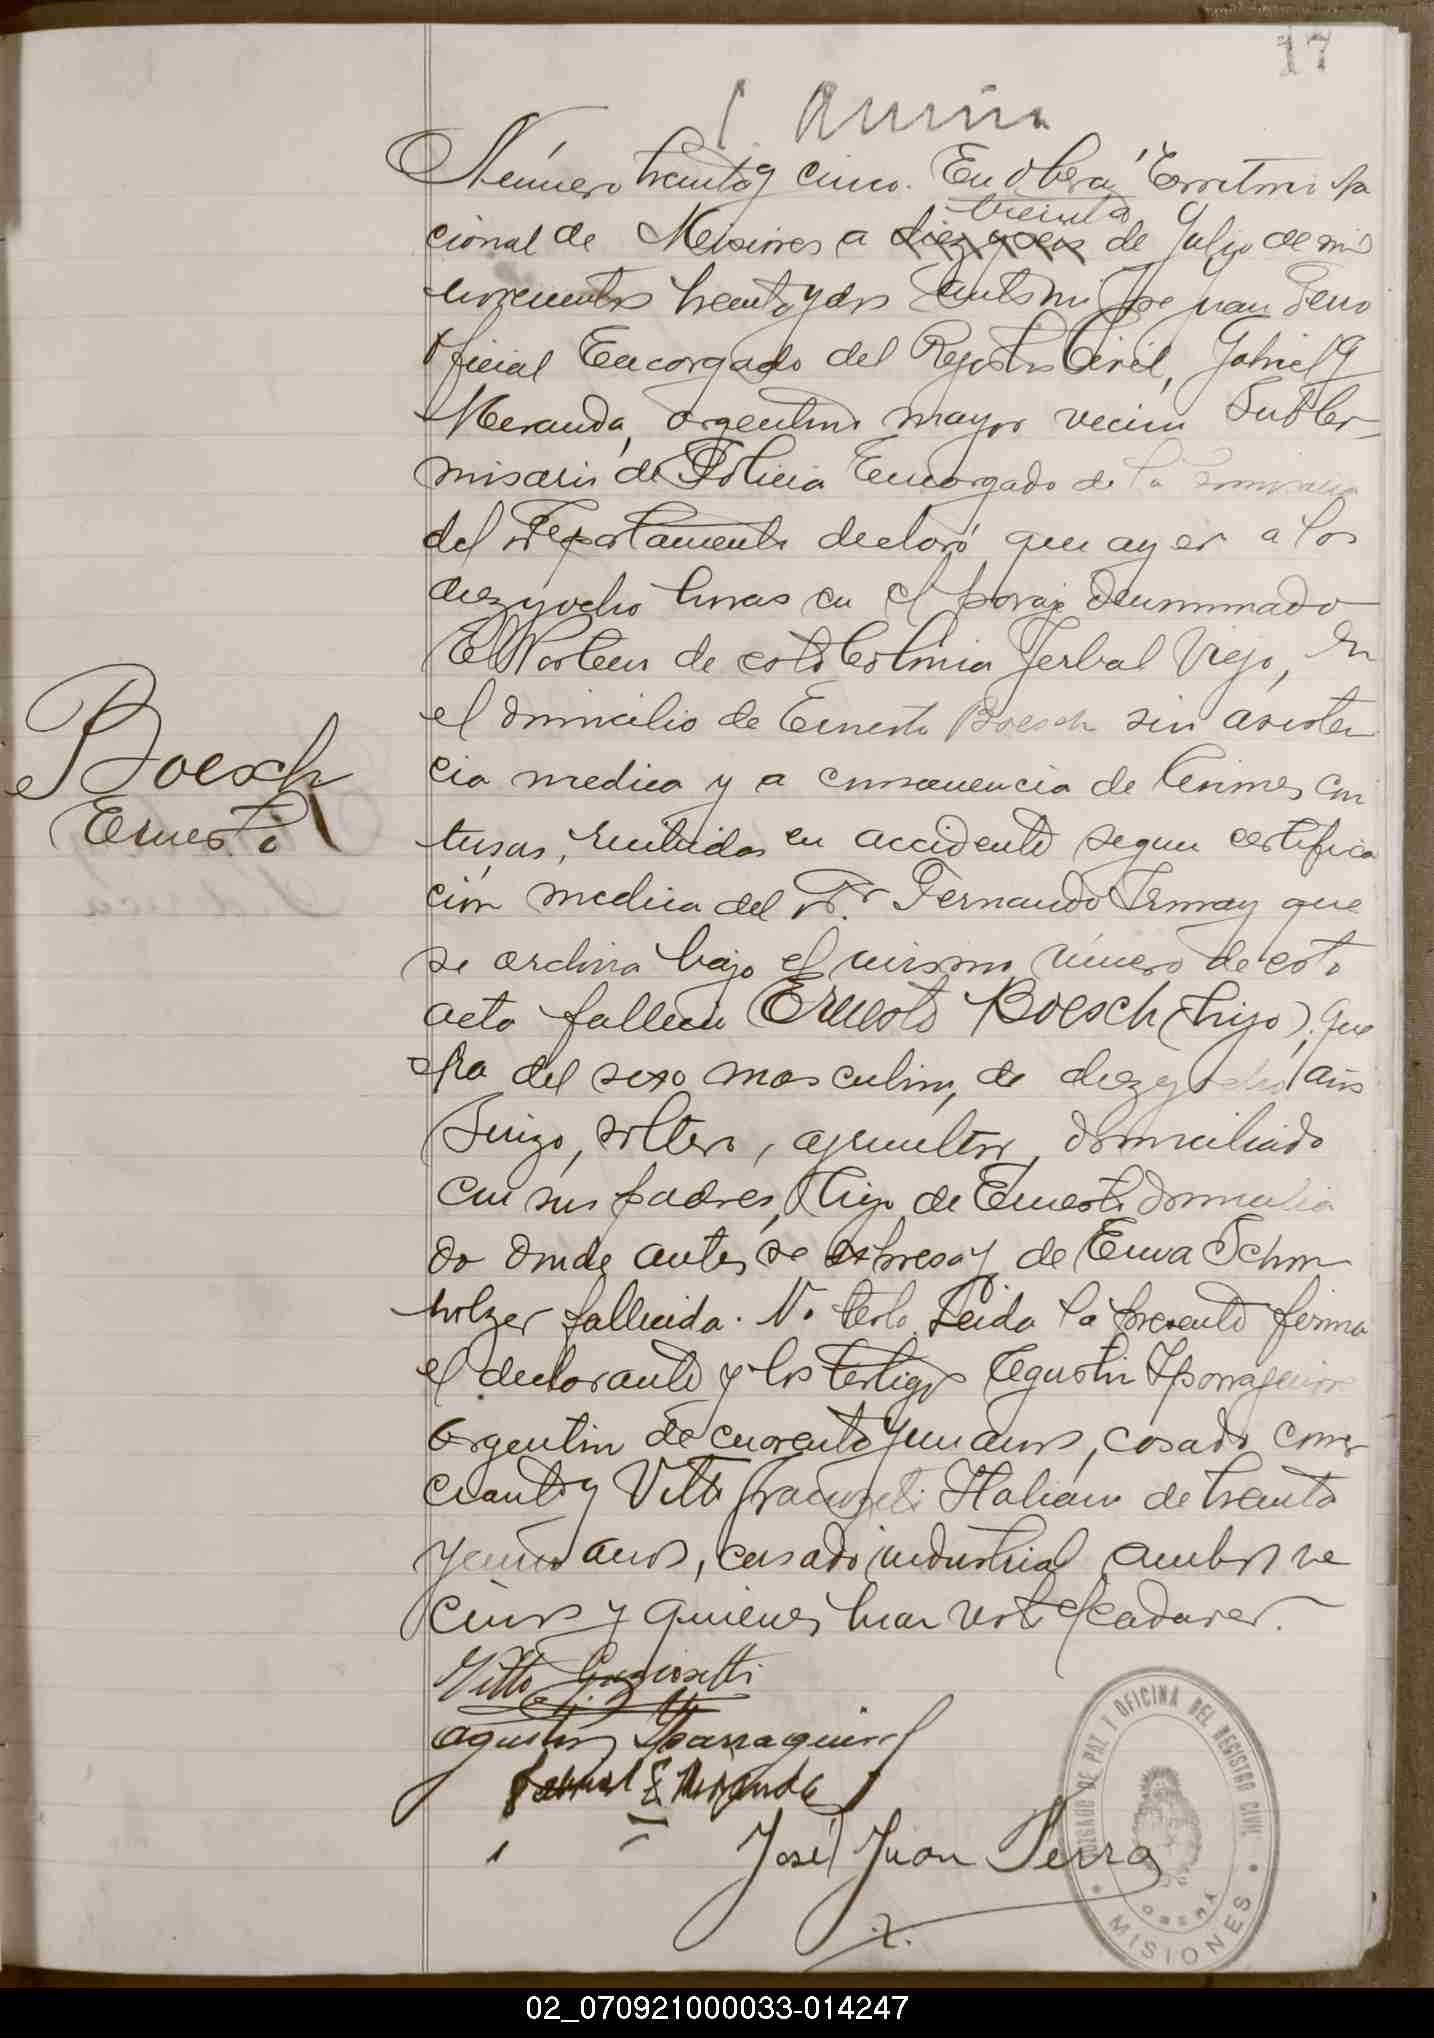 17
Número treinta y cinco. En Oberá Territorio Na
cional de Misiones a diez y seis treinta de Julio de mil
novecientos treinta y dos ante mi José Juan Serra
Oficial Encargado del Registro Civil, Gabriel G
Meranda, argentino mayor vecino Sub Co-
misario de Policia Encargado de la Comisaria
del Departamento declaró que ayer a las
diez y ocho horas en el paraje denominado
de esta Colonia Yerbal Viejo, en
el domicilio de Ernesto Boesch sin asisten
cia medica y a consecuencia de lesiones con
tusas, recibidas en accidente segun certifica
ción medica del Dr. Fernando Irmay que
se archiva bajo el mismo número de esta
acta fallecio Ernesto Boesch (hijo), que
era del sexo masculino, de diez y ocho años
Suizo, soltero, agricultor, domiciliado
con sus padres, hijo de Ernesto domicilia
do donde antes se expresa y de Emma Schm
holzer fallecida. No testo. Leida la presente firma
el declarante y los testigos Agustin Yparraguirre
Argentino de cuarenta y un años, casado comer
ciante y Vitto Italiano de treinta
y cinco años, casado industrial ambos ve
cinos y quienes han visto el cadaver.
Boesch
Ernesto
Vitto
Agustin Yparraguirre
Gabriel G Meranda
José Juan Serra
JUZGADO DE PAZ Y OFICINA DEL REGISTRO CIVIL
OBERÁ
MISIONES
02_070921000033-014247